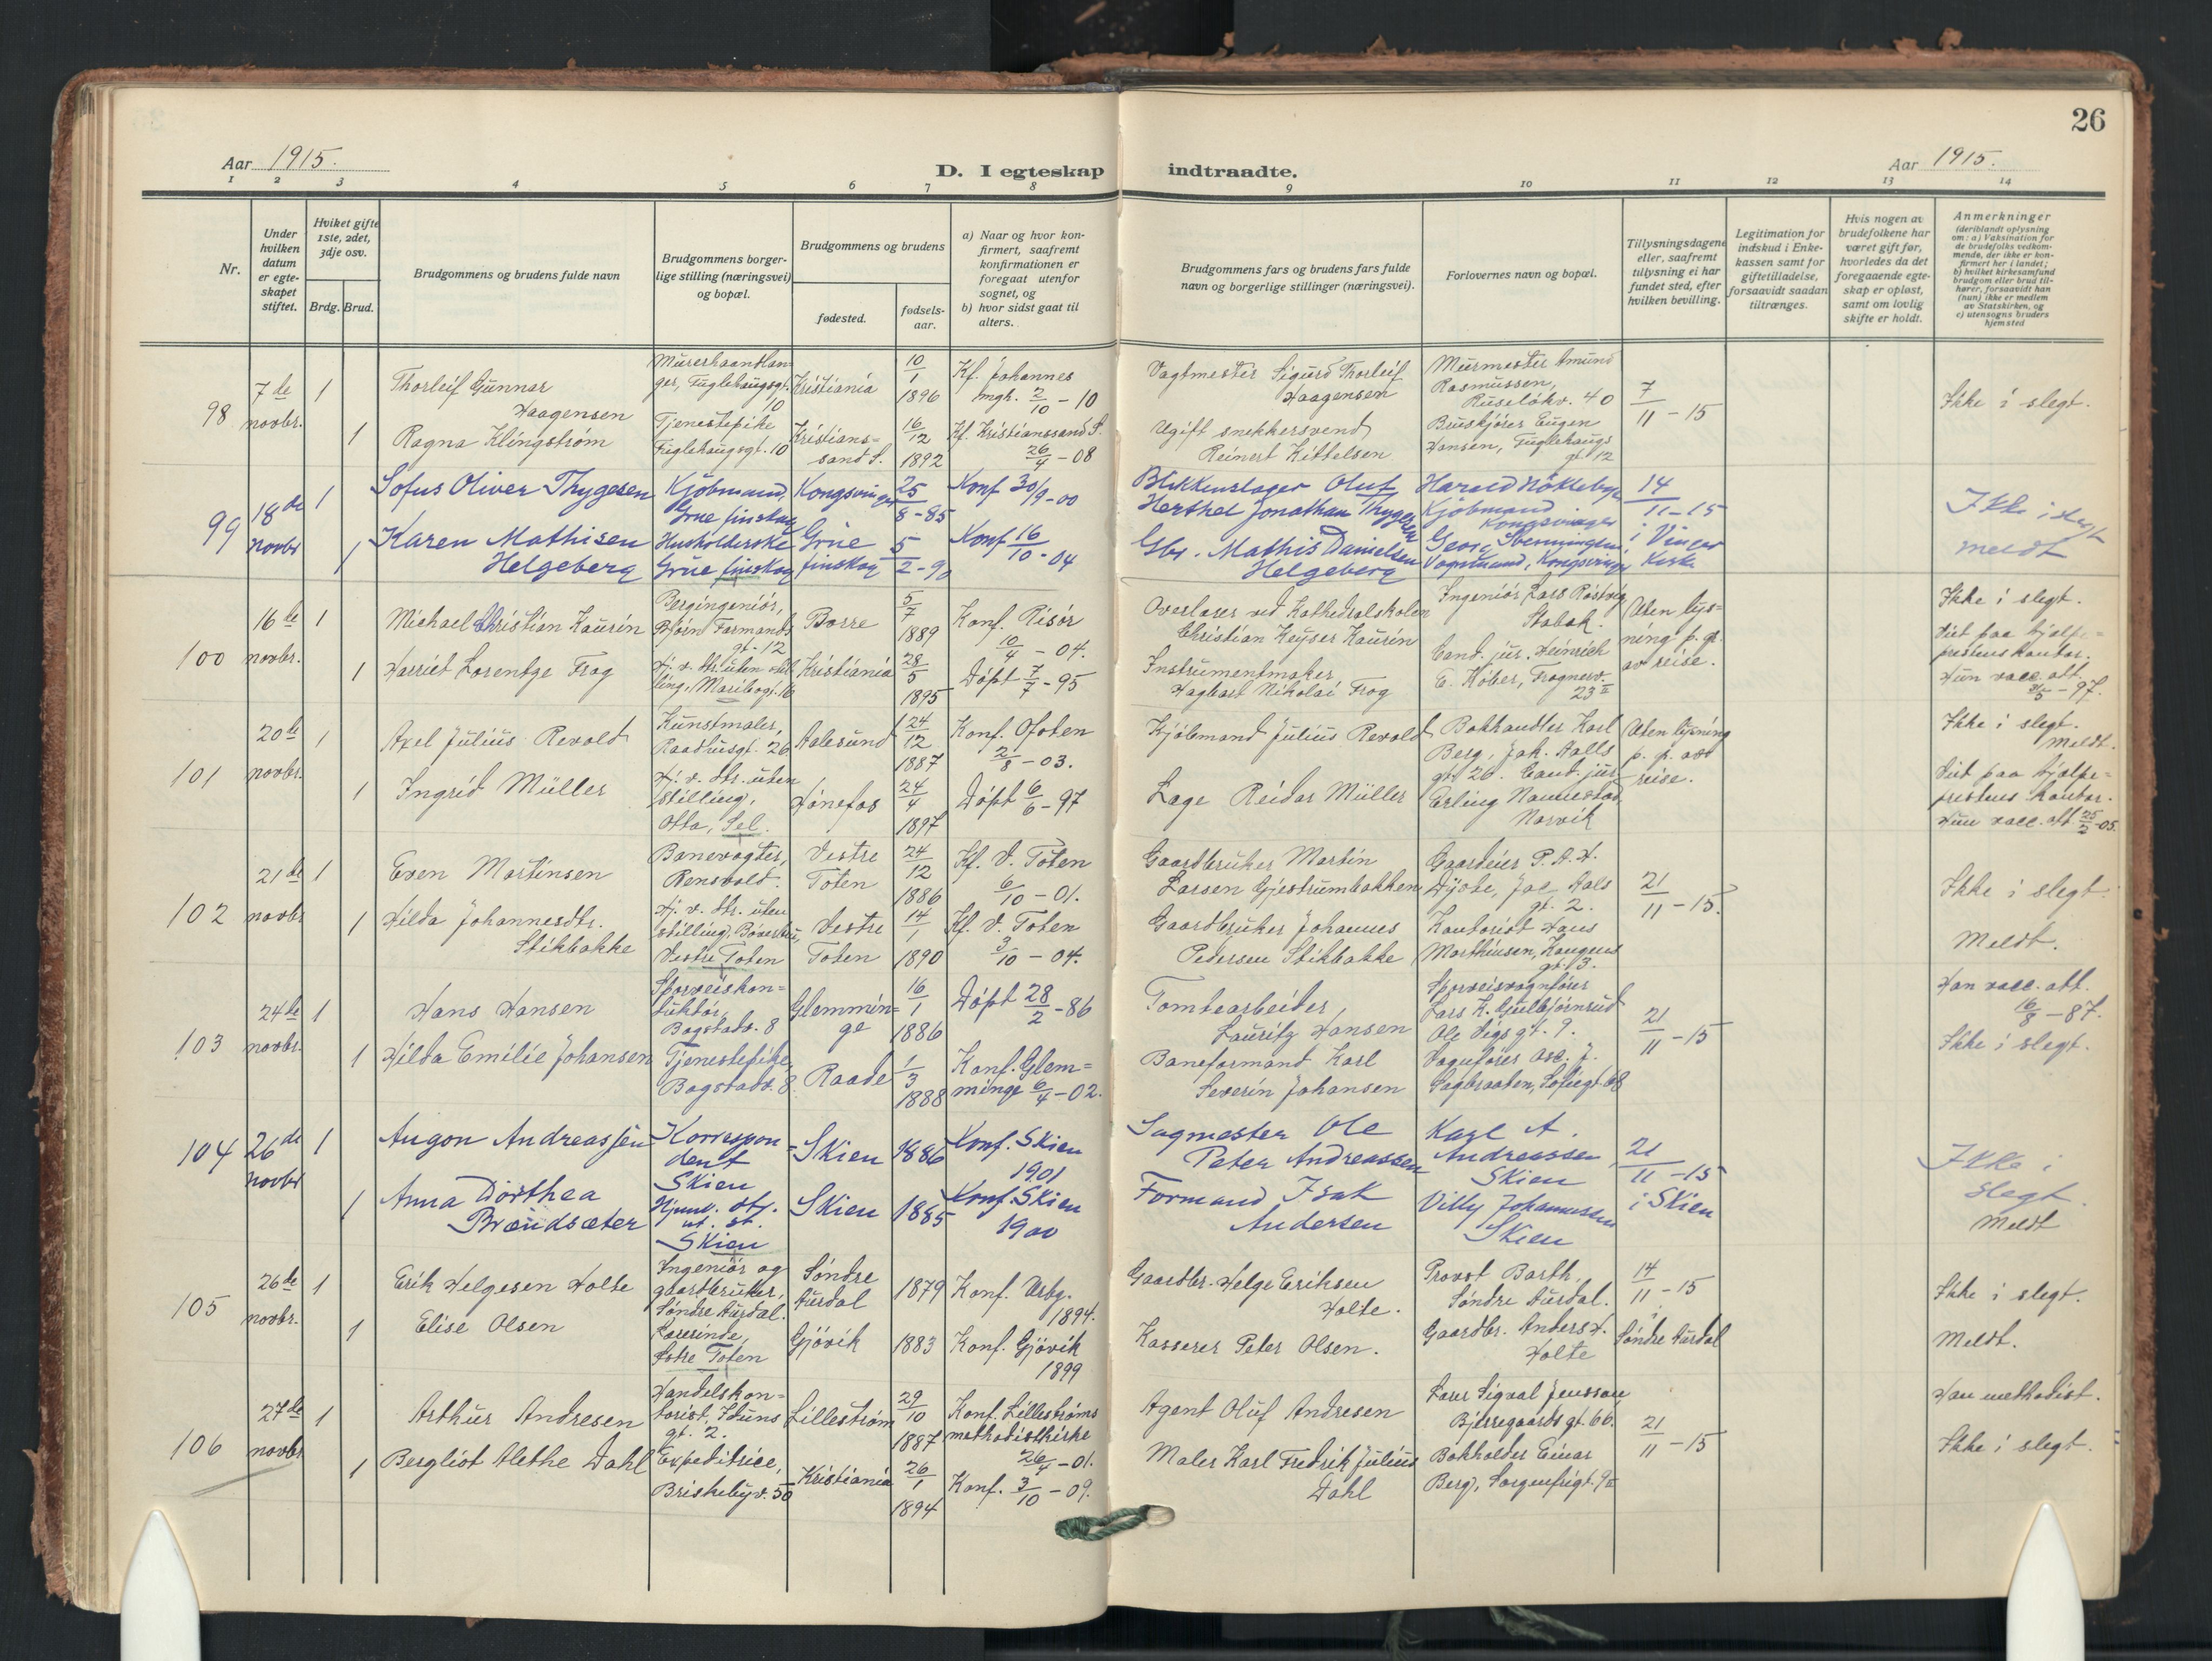 26
Aar 1915.
D. I egteskap indtraadte.
Aar 1915.
1 2 3 4 5 6 7 8 9 10 11 12 13 14
Nr.
Under hvilken datum er egteskapet stiftet.
Hviket gifte 1ste, 2det, 3dje osv.
Brdg. Brud.
Brudgommens og brudens fulde navn
Brudgommens borgerlige stilling (næringsvei) og bopæl.
Brudgommens og brudens
fødested.
fødselsaar.
a) Naar og hvor konfirmert, saafremt konfirmationen er foregaat utenfor sognet, og
b) hvor sidst gaat til alters.
Brudgommens fars og brudens fars fulde navn og borgerlige stillinger (næringsvei).
Forlovernes navn og bopæl.
Tillysningsdagene eller, saafremt tillysning ei har fundet sted, efter hvilken bevilling.
Legitimation for indskud i Enkekassen samt for giftetilladelse, forsaavidt saadan tiltrænges.
Hvis nogen av brudefolkene har været gift før, hvorledes da det foregaaende egteskap er opløst, samt om lovlig skifte er holdt.
Anmerkninger
(deriblandt oplysning om: a) Vaksination for de brudefolks vedkommende, der ikke er konfirmert her i landet;
b) hvilket kirkesamfund brudgom eller brud tilhører, forsaavidt han (hun) ikke er medlem av Statskirken, og
c) utensogns bruders hjemsted
98
7de novbr.
1
Thorleif Gunnar Haagensen
Murerhaandlanger, Fuglehaugsgt. 10
Kristiania
10/1 1896
Kf. Johannes mgh. 2/10 - 10
Vagtmester Sigurd Thorleif Haagensen
Murmester Amund Rasmussen, Ruseløkv. 40
7/11 - 15
Ikke i slegt.
1
Ragna Klingstrøm
Tjenestepike Fuglehaugsgt. 10
Kristianssand S.
16/12 1892
Kf. Kristianssand S. 26/4 - 08
Ugift snekkersvend Reinert Kittelsen
Bruskjører Eugen Hansen, Fuglehaugsgt. 12
99
18de novbr
1
Sofus Oliver Thygesen
Kjøbmand, Grue finskog
Kongsvinger
25/8 - 85
Konf 30/9 - 00
Blikkenslager Oluf Herthel Jonathan Thygesen
Harald Nøkleby Kjøbmand Kongsvinger
14/11 - 15 i Vinger Kirke
Ikke i slegt
meldt
1
Karen Mathisen Helgeberg
Husholderske Grue finskog
Grue finskog
5/2 - 90
Konf 16/10 - 04
Gbr. Mathis Danielsen Helgeberg
Georg Svenningsen, Vognmand, Kongsvinger
100
16de novbr.
1
Michael Christian Kaurin
Bergingeniør, Bjørn Farmandsgt. 12
Borre
5/7 1889
Konf. Risør 10/4 - 04.
Overlærer ved Kathedralskolen Christian Keyser Kaurin
Ingeniør Lars Røstvig Stabæk.
Uten lysning p. gr. av reise.
Ikke i slegt.
Viet paa hjælpeprestens kontor.
Hun vacc. att. 21/5 - 97.
1
Harriet Lorentze Frog
Hj. v. dtr. uten stilling, Maribogt. 16
Kristiania
28/5 1895
Døpt 7/7 - 95
Instrumentmaker Hagbart Nikolai Frog
Cand. jur. Heinrich E. Høber, Frognerv. 23 II
101
20de novbr.
1
Axel Julius Revold
Kunstmaler, Raadhusgt. 26
Aalesund
24/12 1887
Konf. Ofoten 2/8 - 03.
Kjøbmand Julius Revold
Bokhandler Karl Berg, Jak. Aalls gt. 20.
Uten lysning p. gr. av reise.
Ikke i slegt.
Meldt.
Viet paa hjælpeprestens kontor.
Hun vacc. att. 25/5 - 05.
1
Ingrid Müller
Hj. v. dtr. uten stilling, Otta, Sel.
Hønefos
24/4 1897
Døpt 6/6 - 97
Læge Reidar Müller
Cand. jur. Erling Naunestad Narvik
102
21de novbr
1
Even Martinsen
Banevogter, Rensvold.
Vestre Toten
24/12 1886
Kf. V. Toten 6/10 - 01.
Gaardbruker Martin Larsen Gjestrumbakken
Gaardeier P. A. H. Dybe, Jac. Aals gt. 2.
21/11 - 15.
Ikke i slegt.
Meldt.
1
Hilda Johannesdtr. Stikbakke
Hj. v. dtr. uten stilling, Bøverbru, Vestre Toten
Vestre Toten
14/1 1890
Kf. V. Toten 3/10 - 04.
Gaardbruker Johannes Pedersen Stikbakke
Kontorist Hans Marthinsen, Kongens gt. 13.
103
24de novbr.
1
Hans Hansen
Sporveiskonduktør, Bogstadv. 8
Glemminge
16/1 1886
Døpt 28/2 - 86
Tomtearbeider, Lauritz Hansen
Sporveisvognfører Lars K. Gulbjørnrud Ole Vigs gt. 9.
21/11 - 15
Han vacc. att. 16/8 - 87.
Ikke i slegt.
1
Hilda Emilie Johansen
Tjenestepike, Bogstadv. 8.
Raade
1/3 1888
Konf. Glemminge 6/4 - 02.
Baneformand Karl Severin Johansen
Vognfører Osc. J. Sagbraaten, Sofiegt. 68
104
26de novbr
1
Augon Andreassen
Korrespondent Skien
Skien
1886
Konf. Skien 1901
Sagmester Ole Peter Andreassen
Karl A. Andreassen Skien
21/11 - 15 i Skien
Ikke i slegt.
Meldt
1
Anna Dorthea Brændsæter
Hjemv. dtr. ut. st. Skien
Skien
1885
Konf. Skien 1900
Formand Isak Andersen
Villy Johannessen Skien
105
26de novbr.
1
Erik Helgesen Holte
Ingeniør og gaardbruker, Søndre Aurdal.
Søndre Aurdal
1879
Konf. Urbg. 1894.
Gaardbr. Helge Eriksen Holte.
Provst Barth, Søndre Aurdal.
14/11 - 15 i Søndre Aurdal
Ikke i slegt.
Meldt.
1
Elise Olsen
Lærerinde, Østre Toten
Gjøvik
1883
Konf. Gjøvik 1899
Kasserer Peter Olsen.
Gaardbr. Anders H. Holte
106
27de novbr
1
Arthur Andresen
Handelskontorist, Iduns gt. 2.
Lillestrøm
29/10 1887
Konf. Lillestrøms methodistkirke 26/4 - 01.
Agent Oluf Andresen
Lærer Sigval Jenssen Bjerregaards gt. 66.
21/11 - 15
Han methodist.
Ikke i slegt.
1
Bergliot Alethe Dahl
Expeditrice, Briskebyv. 50
Kristiania
26/1 1894
Konf. 3/10 - 09.
Maler Karl Fredrik Julius Dahl
Bokholder Einar Berg, Sorgenfrigt. 9 II